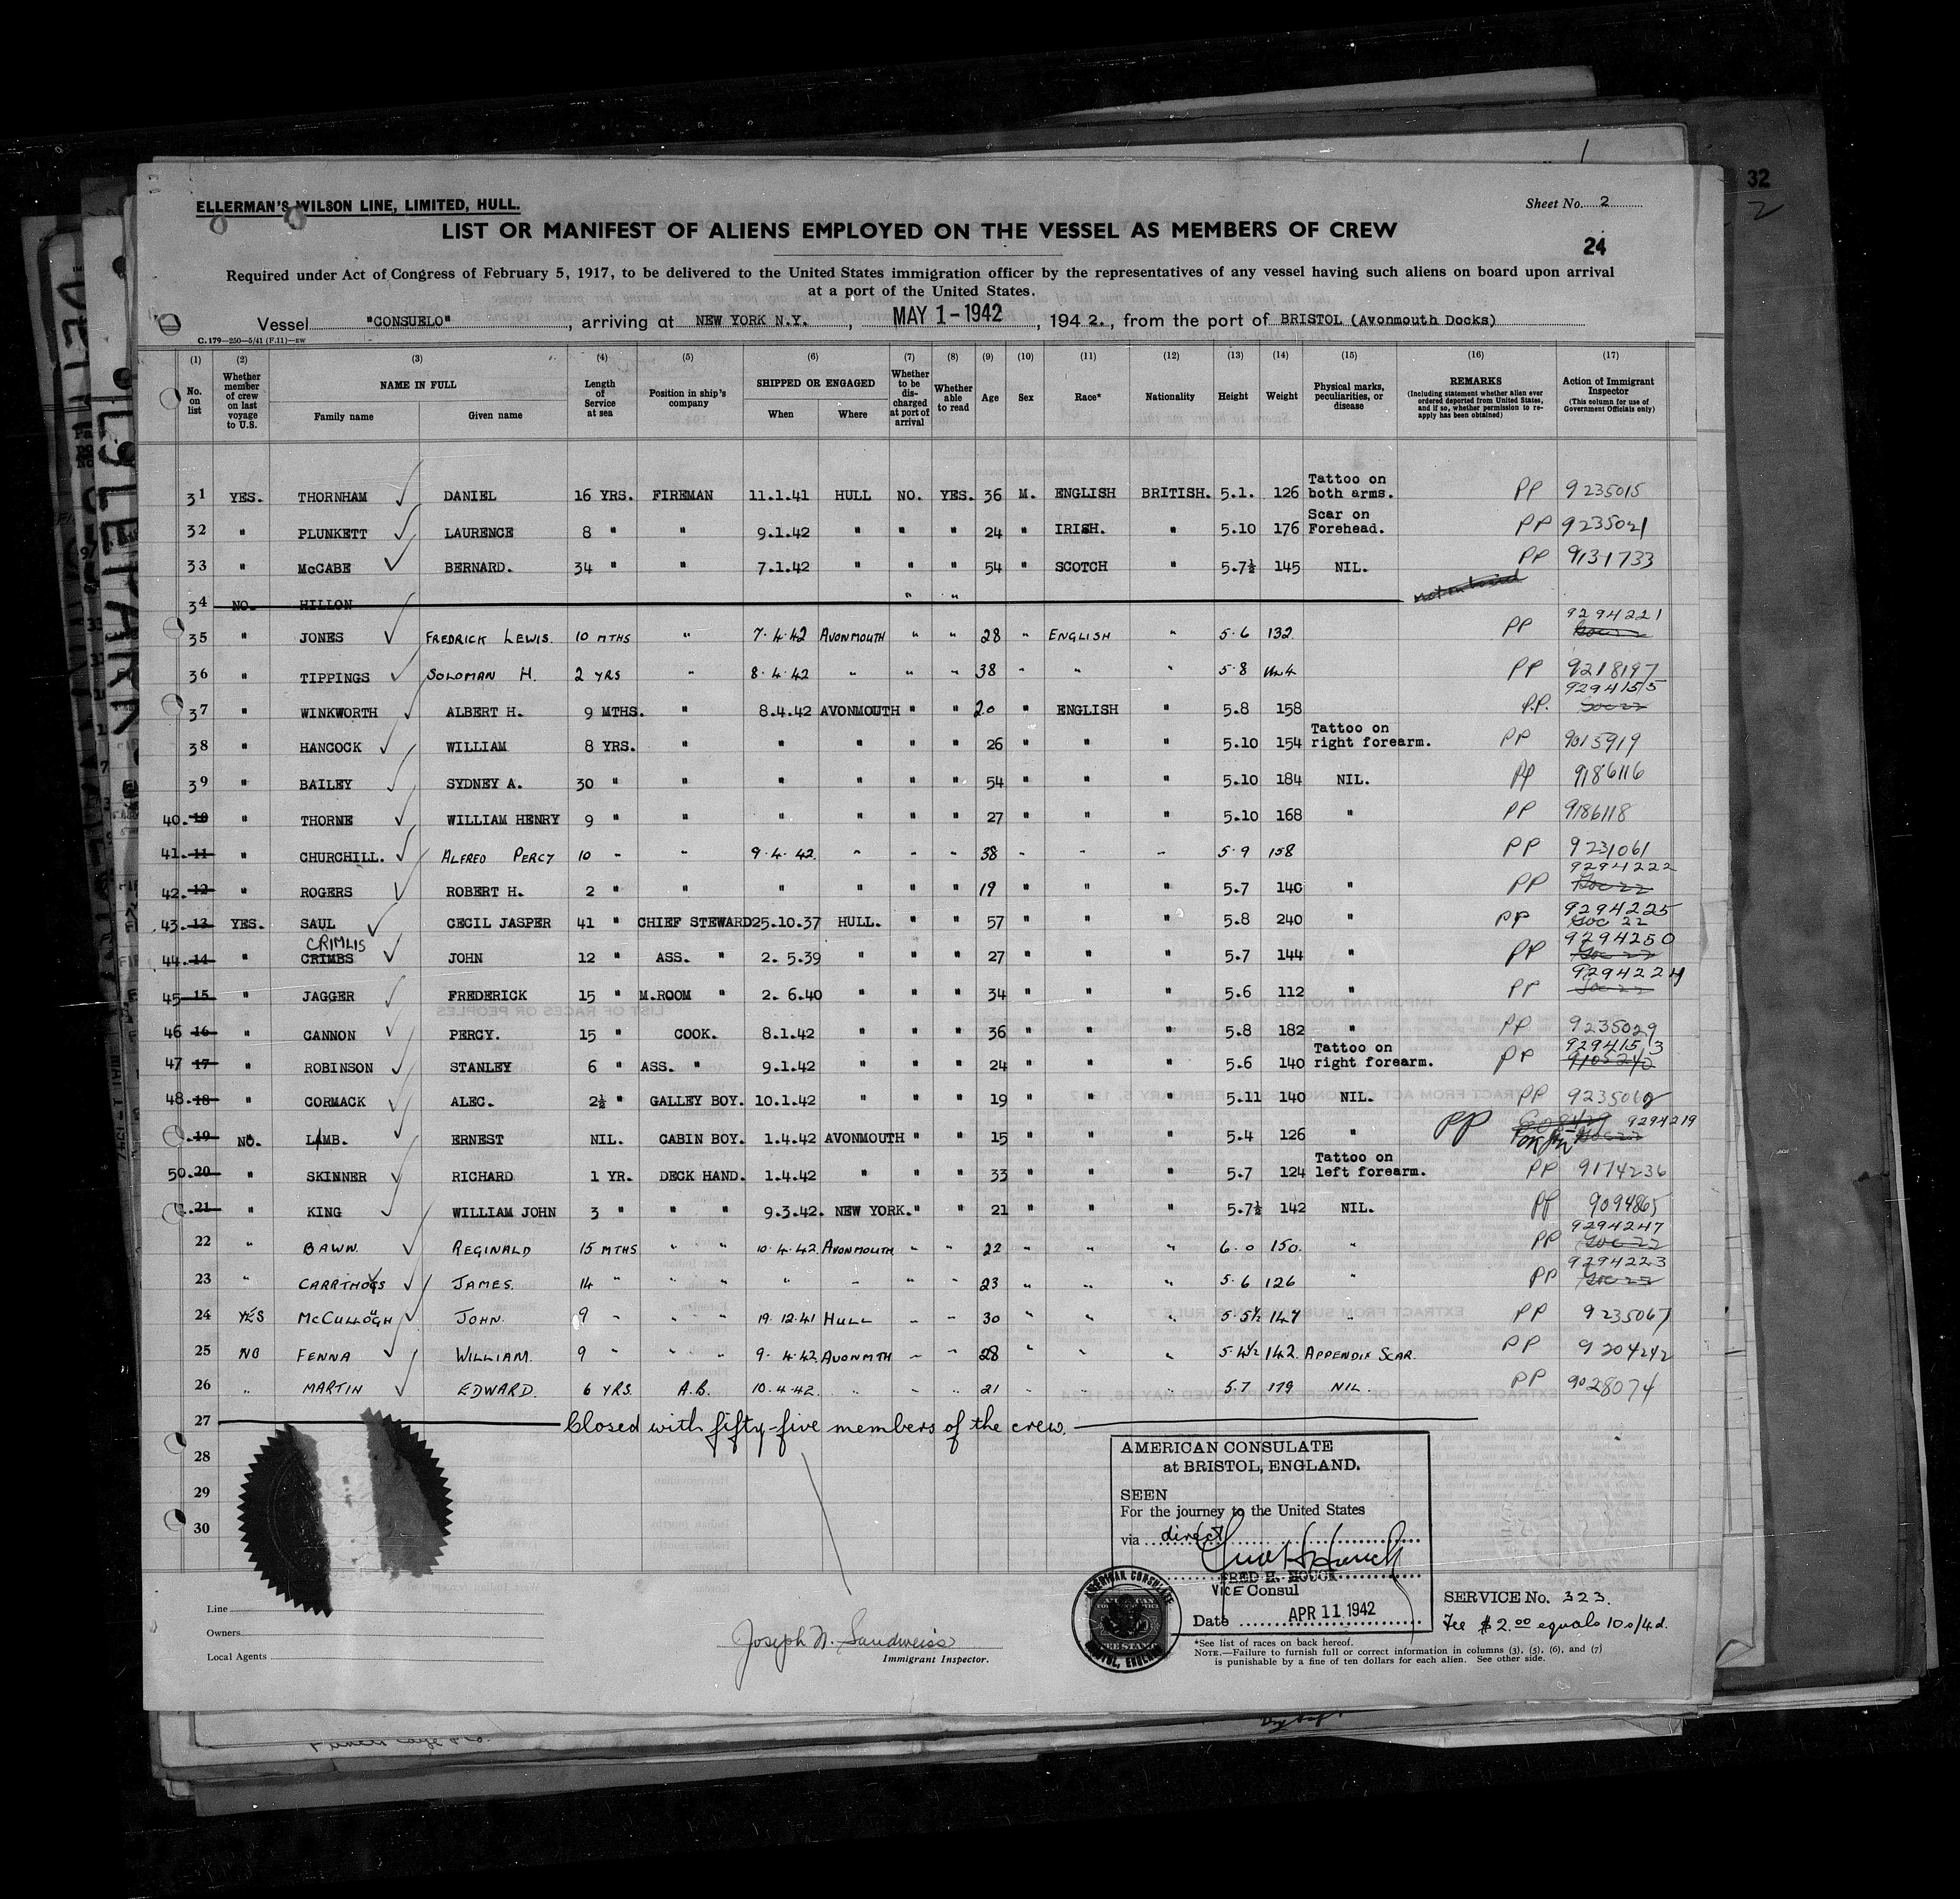 32
2
ELLERMAN'S WILSON LINE, LIMITED, HULL.
Sheet No. 2
LIST OR MANIFEST OF ALIENS EMPLOYED ON THE VESSEL AS MEMBERS OF CREW
24
Required under Act of Congress of February 5, 1917, to be delivered to the United States immigration officer by the representatives of any vessel having such aliens on board upon arrival
at a port of the United States.
Vessel "CONSUELO", arriving at NEW YORK N.Y., MAY 1-1942, 194 2., from the port of BRISTOL (Avonmouth Docks)
C.179—250—5/41 (F.11)—EW
(1) (2) (3) (4) (5) (6) (7) (8) (9) (10) (11) (12) (13) (14) (15) (16) (17)
No. on list Whether member of crew on last voyage to U.S. NAME IN FULL Family name Given name Length of Service at sea Position in ship's company SHIPPED OR ENGAGED When Where Whether to be discharged at port of arrival Whether able to read Age Sex Race* Nationality Height Weight Physical marks, peculiarities, or disease REMARKS (Including statement whether alien ever ordered deported from United States, and if so, whether permission to re-apply has been obtained) Action of Immigrant Inspector (This column for use of Government Officials only)
31 YES. THORNHAM DANIEL 16 YRS. FIREMAN 11.1.41 HULL NO. YES. 36 M. ENGLISH BRITISH. 5.1. 126 Tattoo on both arms. PP 9235015
32 " PLUNKETT LAURENCE 8 " " 9.1.42 " " " 24 " IRISH. " 5.10 176 Scar on Forehead. PP 9235021
33 " McCABE BERNARD. 34 " " 7.1.42 " " " 54 " SCOTCH " 5.7½ 145 NIL. PP 9131733
34 NO. HILLON " "
35 " JONES FREDRICK LEWIS. 10 MTHS " 7.4.42 AVONMOUTH " " 28 " ENGLISH " 5.6 132. PP 9294221
36 " TIPPINGS SOLOMAN H. 2 YRS " 8.4.42 " " " 38 " " " 5.8 PP 9218197
37 " WINKWORTH ALBERT H. 9 MTHS. " 8.4.42 AVONMOUTH " " 20 " ENGLISH " 5.8 158 P.P. 9294155
38 " HANCOCK WILLIAM 8 YRS. " " " " " 26 " " " 5.10 154 Tattoo on right forearm. PP 9015919
39 " BAILEY SYDNEY A. 30 " " " " " " 54 " " " 5.10 184 NIL. PP 9186116
40. 10 " THORNE WILLIAM HENRY 9 " " " " " " 27 " " " 5.10 168 " PP 9186118
41. 11 " CHURCHILL. ALFRED PERCY 10 " " 9.4.42. " " " 38 " " " 5.9 158 PP 9231061
42. 12 " ROGERS ROBERT H. 2 " " " " " " 19 " " " 5.7 140 " PP 9294222
43. 13 YES. SAUL CECIL JASPER 41 " CHIEF STEWARD 25.10.37 HULL. " " 57 " " " 5.8 240 " PP 9294225
44. 14 " CRIMBS CRIMLIS JOHN 12 " ASS. " 2.5.39 " " " 27 " " " 5.7 144 " PP 9294250
45 15 " JAGGER FREDERICK 15 " M.ROOM " 2.6.40 " " " 34 " " " 5.6 112 " PP 9294224
46 16 " CANNON PERCY. 15 " COOK. 8.1.42 " " " 36 " " " 5.8 182 " PP 9235029
47 17 " ROBINSON STANLEY 6 " ASS. " 9.1.42 " " " 24 " " " 5.6 140 Tattoo on right forearm. PP 9294153
48. 18 " CORMACK ALEC. 2½ " GALLEY BOY. 10.1.42 " " " 19 " " " 5.11 140 NIL. PP 9235062
19 NO. LAMB. ERNEST NIL. CABIN BOY. 1.4.42 AVONMOUTH " " 15 " " " 5.4 126 " PP 9294219
50. 20 " SKINNER RICHARD 1 YR. DECK HAND. 1.4.42 " " " 33 " " " 5.7 124 Tattoo on left forearm. PP 9174236
21 " KING WILLIAM JOHN 3 " " " 9.3.42. NEW YORK. " " 21 " " " 5.7½ 142 NIL. PP 9094865
22 " BAWN. REGINALD 15 MTHS " " 10.4.42. AVONMOUTH " " 22 " " " 6.0 150. " PP 9294247
23 " CARRTHOGS JAMES. 14 " " " " " " " 23 " " " 5.6 126 " PP 9294223
24 YES McCULLOUGH JOHN. 9 " " " 19.12.41 HULL " " 30 " " " 5.5½ 147 " PP 9235067
25 NO FENNA WILLIAM. 9 " " " 9.4.42. AVONMTH " " 28 " " " 5.4½ 142. APPENDIX SCAR. PP 9204242
26 " MARTIN EDWARD. 6 YRS. A.B. 10.4.42. " " " 21 " " " 5.7 179 NIL. PP 9028074
27 Closed with fifty-five members of the crew.
28
29
30
AMERICAN CONSULATE
at BRISTOL, ENGLAND.
SEEN
For the journey to the United States
via direct
FRED H. HOUCK
VICE Consul
Date APR 11 1942
AMERICAN CONSULATE
BRISTOL, ENGLAND
SERVICE No. 323.
Fee $2.00 equals 10s/4d.
Line
Owners
Local Agents
Joseph N. Sandweiss
Immigrant Inspector.
*See list of races on back hereof.
NOTE.—Failure to furnish full or correct information in columns (3), (5), (6), and (7)
is punishable by a fine of ten dollars for each alien. See other side.